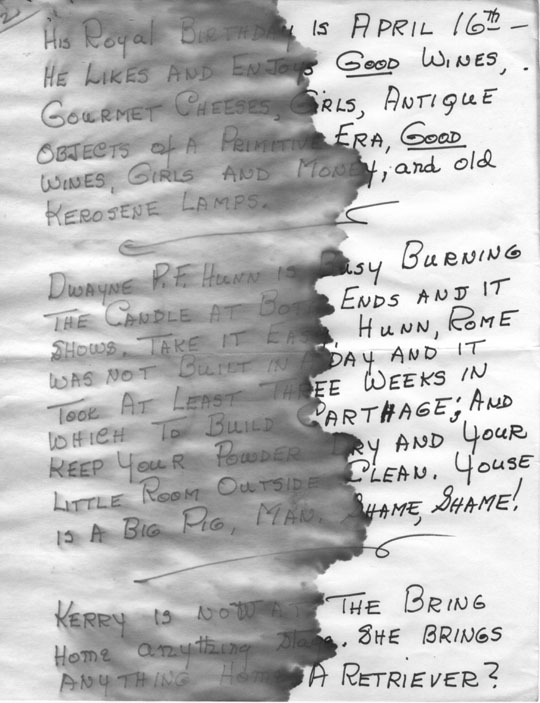 2
His Royal Birthday is April 16th –
He Likes and Enjoys Good Wines,
Gourmet Cheeses, Girls, Antique
Objects of a Primitive Era, Good
Wines, Girls and Money, and old
Kerosene Lamps.
Dwayne P.F. Hunn is Busy Burning
the Candle at Both Ends and it
shows. Take it Easy, Hunn, Rome
was not Built in a day and it
Took At Least Three Weeks in
which To Build Carthage; and
Keep Your Powder Dry and Your
Little Room Outside Clean. Youse
is a Big Pig, Man. Shame, Shame!
Kerry is now at the Bring
Home anything Stage. She brings
anything Home. A Retriever?